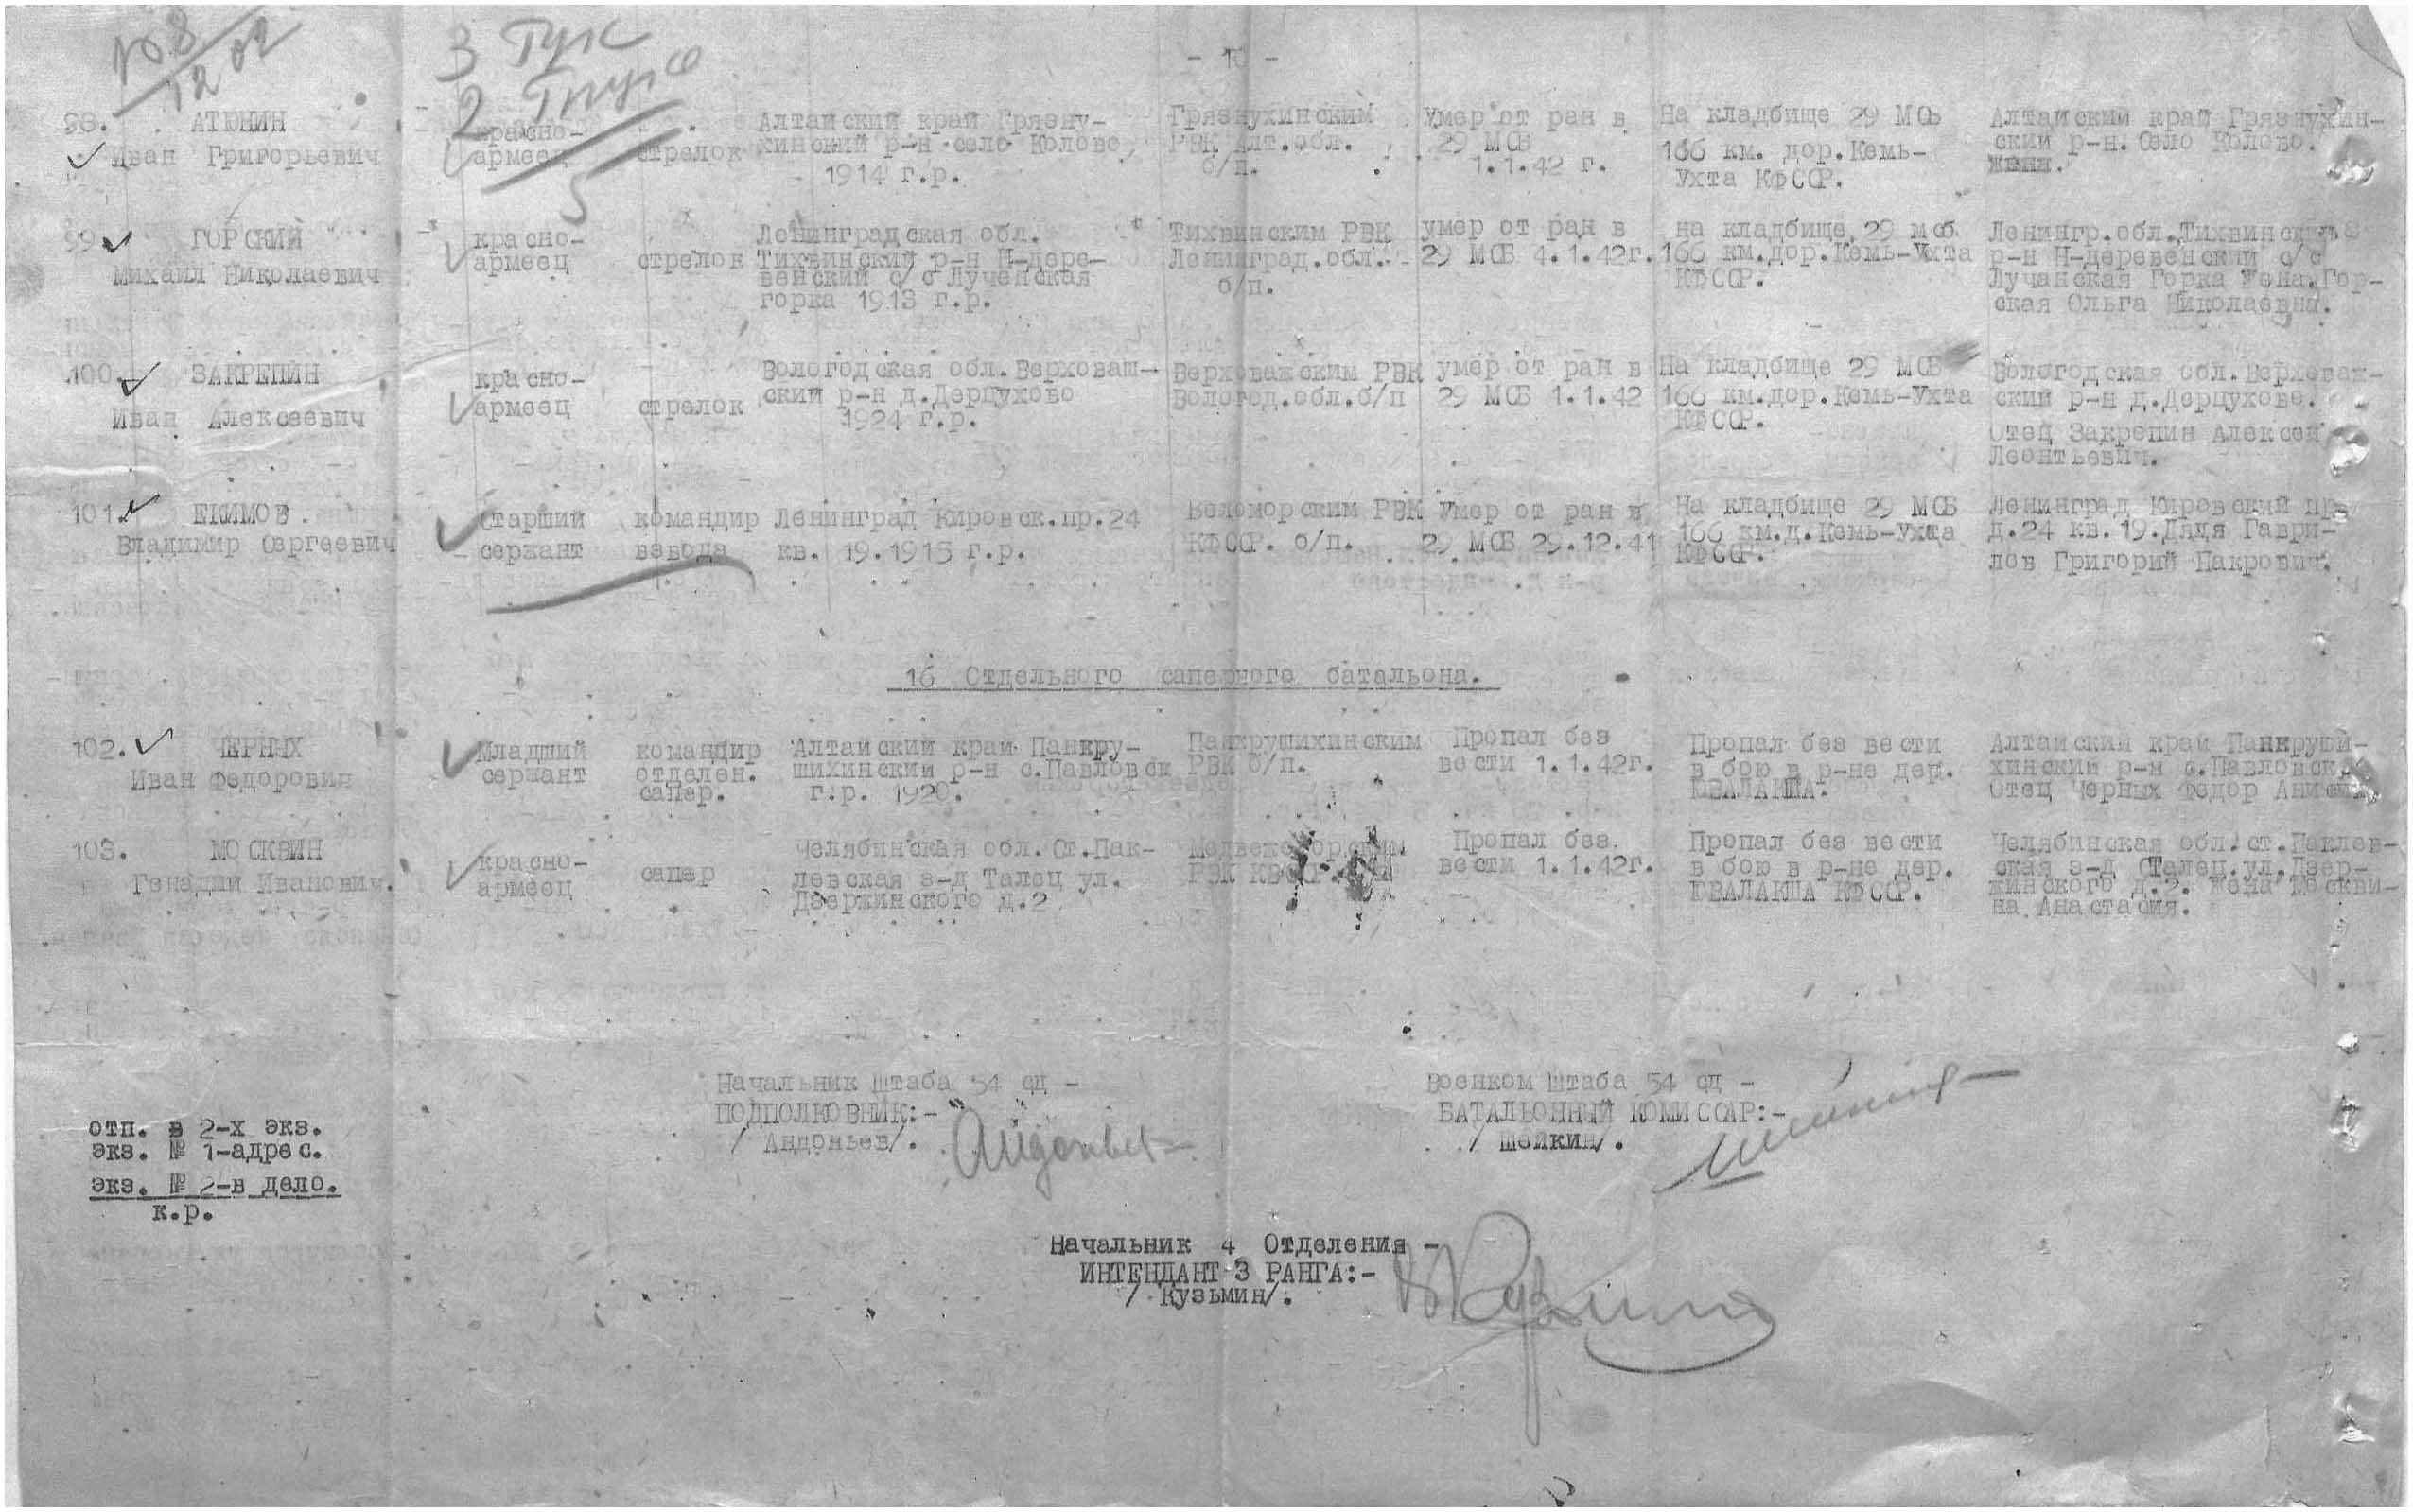 3 Гук
2
5
98. АТЮНИН
Иван Григорьевич
красно-
армеец
стрелок
Алтайский край Грязну-
хинский р-н село Колово
1914 г.р.
Грязнухинским
РВК Алт.обл.
б/п.
Умер от ран в
29 МСБ
1.1.42 г.
На кладбище 29 МСБ
166 км. дор.Кемь-
Ухта КФССР.
Алтайский край Грязнухин-
ский р-н. Село Колово.
99 ГОРСКИЙ
Михаил Николаевич
красно-
армеец
стрелок
Ленинградская обл.
Тихвинский р-н Н-дере-
венский с/с Лученская
горка 1913 г.р.
Тихвинским РВК
Ленинград.обл.
б/п.
умер от ран в
29 МСБ 4.1.42г.
на кладбище 29 мсб
166 км.дор.Кемь-Ухта
КФССР.
Ленингр.обл.Тихвинский
р-н Н-деревенский с/с
Лучанская Горка Жена.Гор-
ская Ольга Николаевна.
100. ЗАКРЕПИН
Иван Алексеевич
красно-
армеец
стрелок
Вологодская обл.Верховаш-
ский р-н д.Дерцухово
1924 г.р.
Верховажским РВК
Вологод.обл.б/п
умер от ран в
29 МСБ 1.1.42
На кладбище 29 МСБ
166 км.дор.Кемь-Ухта
КФССР.
Вологодская обл.Верховаж-
ский р-н д.Дерцухово.
Отец Закрепин Алексей
Леонтьевич.
101. ЕКИМОВ.
Владимир Сергеевич
Старший
сержант
командир
взвода
Ленинград Кировск.пр.24
кв. 19.1915 г.р.
Беломорским РВК
КФССР. б/п.
Умер от ран в
29 МСБ 29.12.41
На кладбище 29 МСБ
166 км.д.Кемь-Ухта
КФССР.
Ленинград Кировский пр.
д.24 кв.19.Дядя Гаври-
лов Григорий Пакрович.
16 Отдельного саперного батальона.
102. ЧЕРНЫХ
Иван Федорович
Младший
сержант
командир
отделен.
сапер.
Алтайский край Панкру-
шихинский р-н с.Павловск
г.р. 1920.
Панкрушихинским
РВК б/п.
Пропал без
вести 1.1.42г.
Пропал без вести
в бою в р-не дер.
ЮВАЛАКША.
Алтайский край Панкруши-
хинский р-н с.Павловск
Отец Черных Федор
103. МОСКВИН
Генадий Иванович.
красно-
армеец
сапер
Челябинская обл. Ст.Пак-
левская з-д Талец ул.
Дзержинского д.2
Медвежегорским
РВК
Пропал без.
вести 1.1.42г.
Пропал без вести
в бою в р-не дер.
ЮВАЛАКША КФССР.
Челябинская обл.ст.Паклев-
ская з-д Талец.ул.Дзер-
жинского д.2. Жена Москви-
на Анастасия.
Начальник Штаба 54 сд -
ПОДПОЛКОВНИК:-
/ Андоньев/.
Военком Штаба 54 сд -
БАТАЛЬОННЫЙ КОМИССАР:-
/ Шейкин/.
отп. в 2-х экз.
экз. № 1-адрес.
экз. № 2-в дело.
к.р.
Начальник 4 Отделения -
ИНТЕНДАНТ 3 РАНГА:-
/ Кузьмин/.